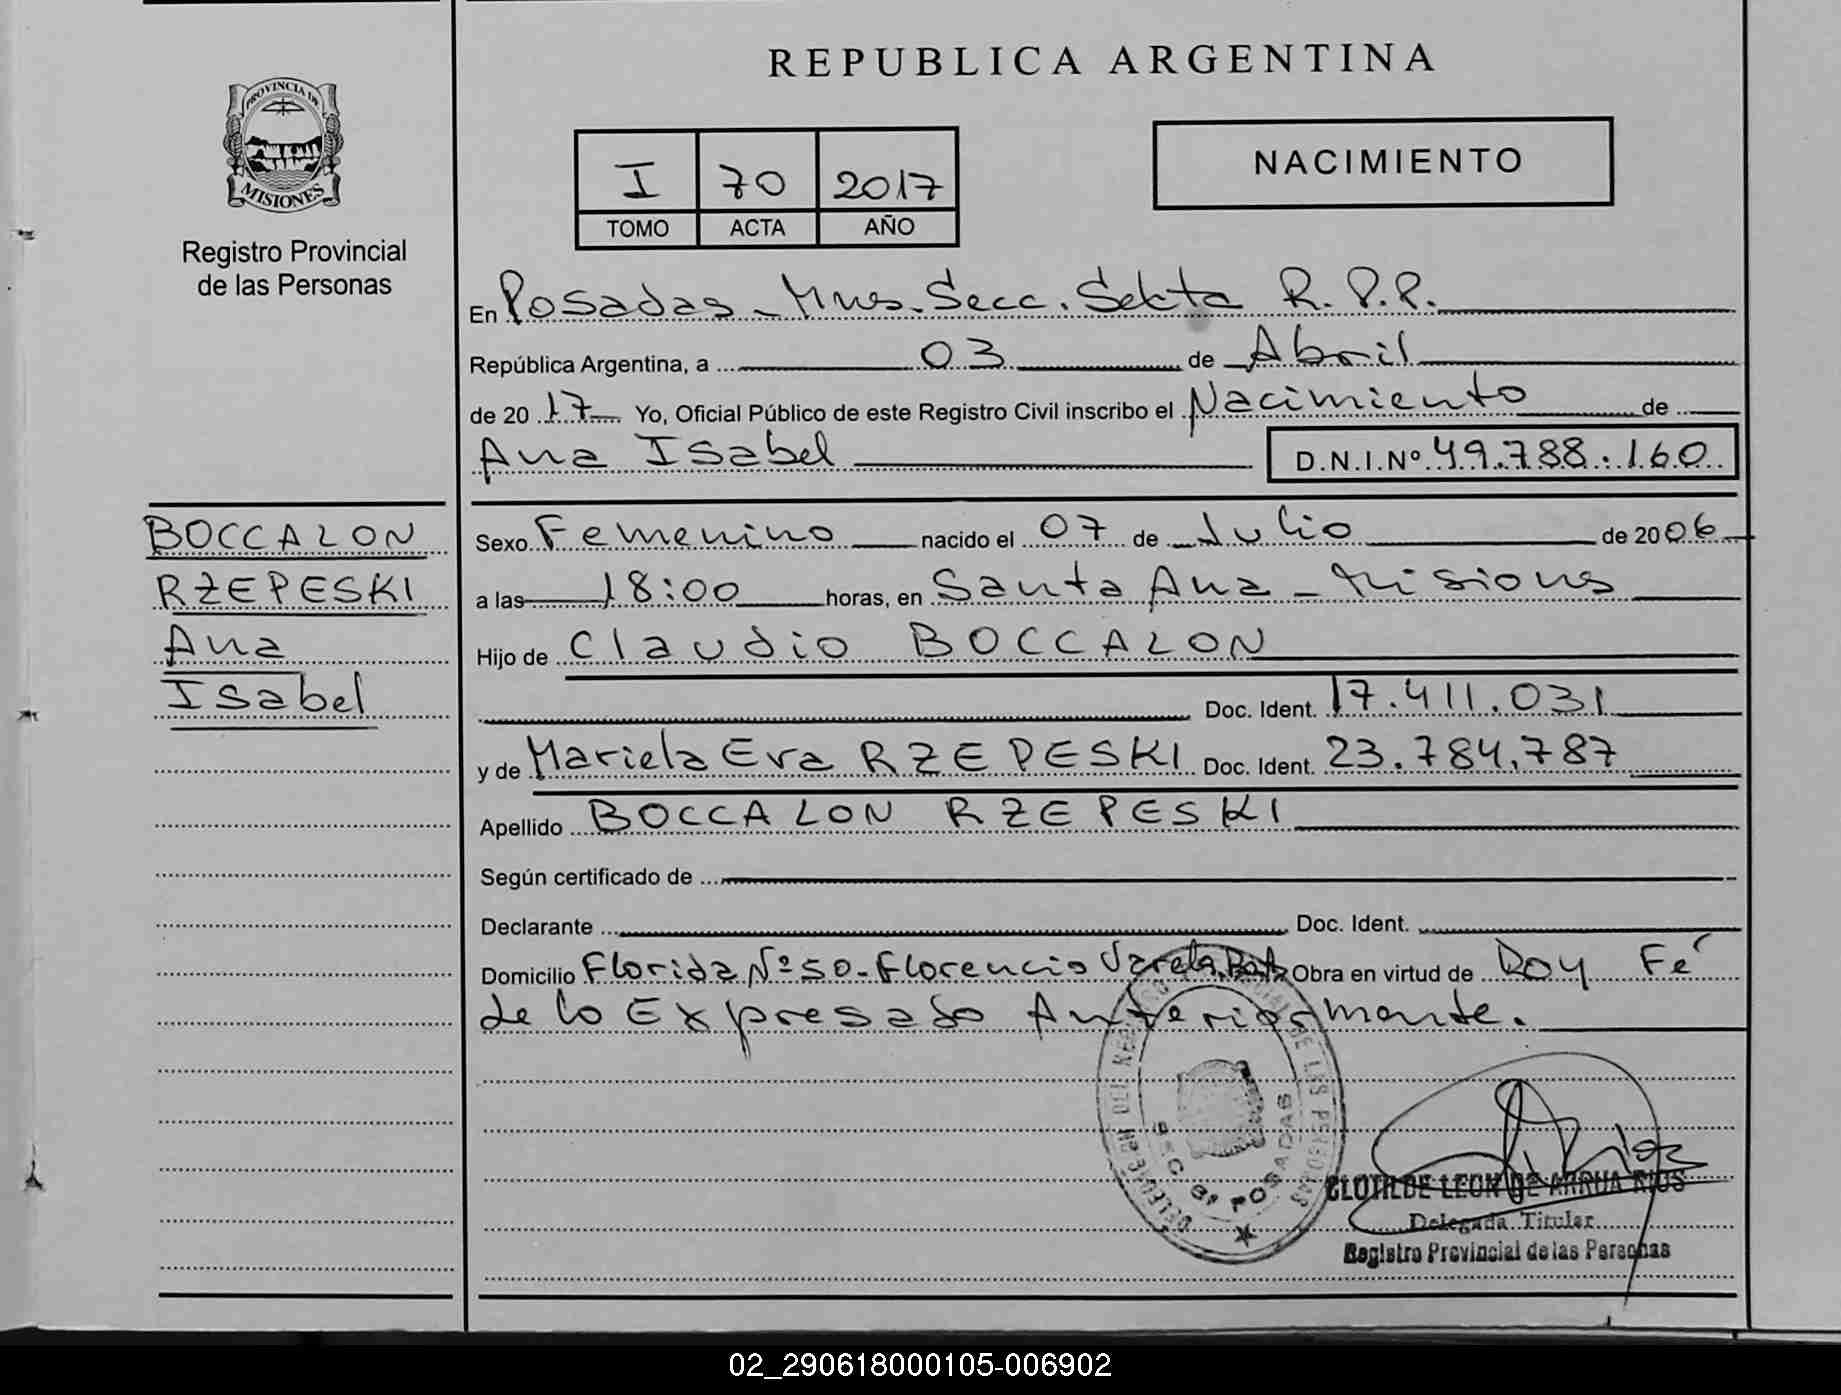 PROVINCIA DE
MISIONES
Registro Provincial
de las Personas
REPUBLICA ARGENTINA
I 70 2017
TOMO ACTA AÑO
NACIMIENTO
En Posadas - Mnes. Secc. Sexta R.P.P.
República Argentina, a 03 de Abril
de 2017 Yo, Oficial Público de este Registro Civil inscribo el Nacimiento de
Ana Isabel D.N.I.Nº 49.788.160
BOCCALON
RZEPESKI
Ana
Isabel
Sexo Femenino nacido el 07 de Julio de 2006
a las 18:00 horas, en Santa Ana - Misiones
Hijo de Claudio BOCCALON
Doc. Ident. 17.411.031
y de Mariela Eva RZEPESKI Doc. Ident. 23.784.787
Apellido BOCCALON RZEPESKI
Según certificado de
Declarante Doc. Ident.
Domicilio Florida Nº 50 - Florencio Varela Obra en virtud de Doy Fé
de lo Expresado Anteriormente.
SEC. 6ª POSADAS
CLOTILDE LEON DE ARRUA RIOS
Delegada Titular
Registro Provincial de las Personas
02_290618000105-006902